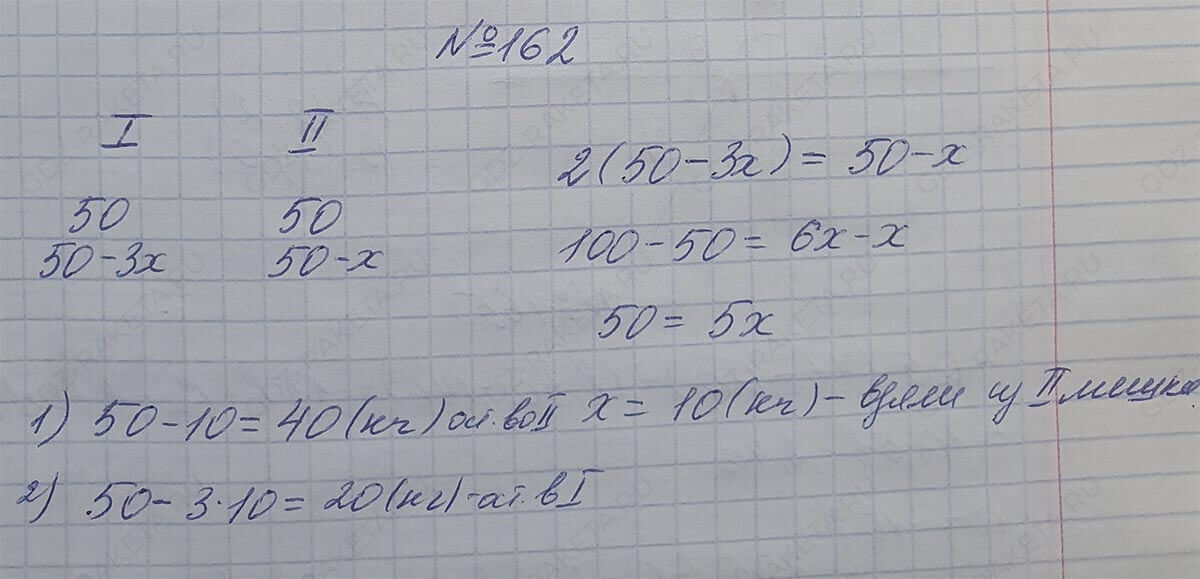 №162
I II
50 50
50-3x 50-x
2(50-3x) = 50-x
100-50 = 6x-x
50 = 5x
x = 10(кг) - взяли из II мешка
1) 50-10 = 40(кг) ост. во II
2) 50-3·10 = 20(кг)-ост. в I